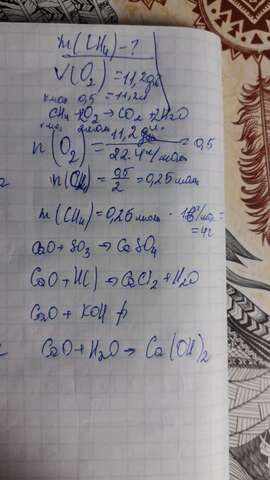 m(CH₄)-?
V(O₂)=11,2дм³
0,5 = 11,2л
CH₄+2O₂→CO₂+2H₂O
n(O₂)= 11,2дм³/22,4л/моль = 0,5
n(CH₄)= 0,5/2 = 0,25моль
m(CH₄)=0,25моль · 16г/моль =
=4г
CaO+SO₃→CaSO₄
CaO+HCl→CaCl₂+H₂O
CaO+KOH
CaO+H₂O→Ca(OH)₂